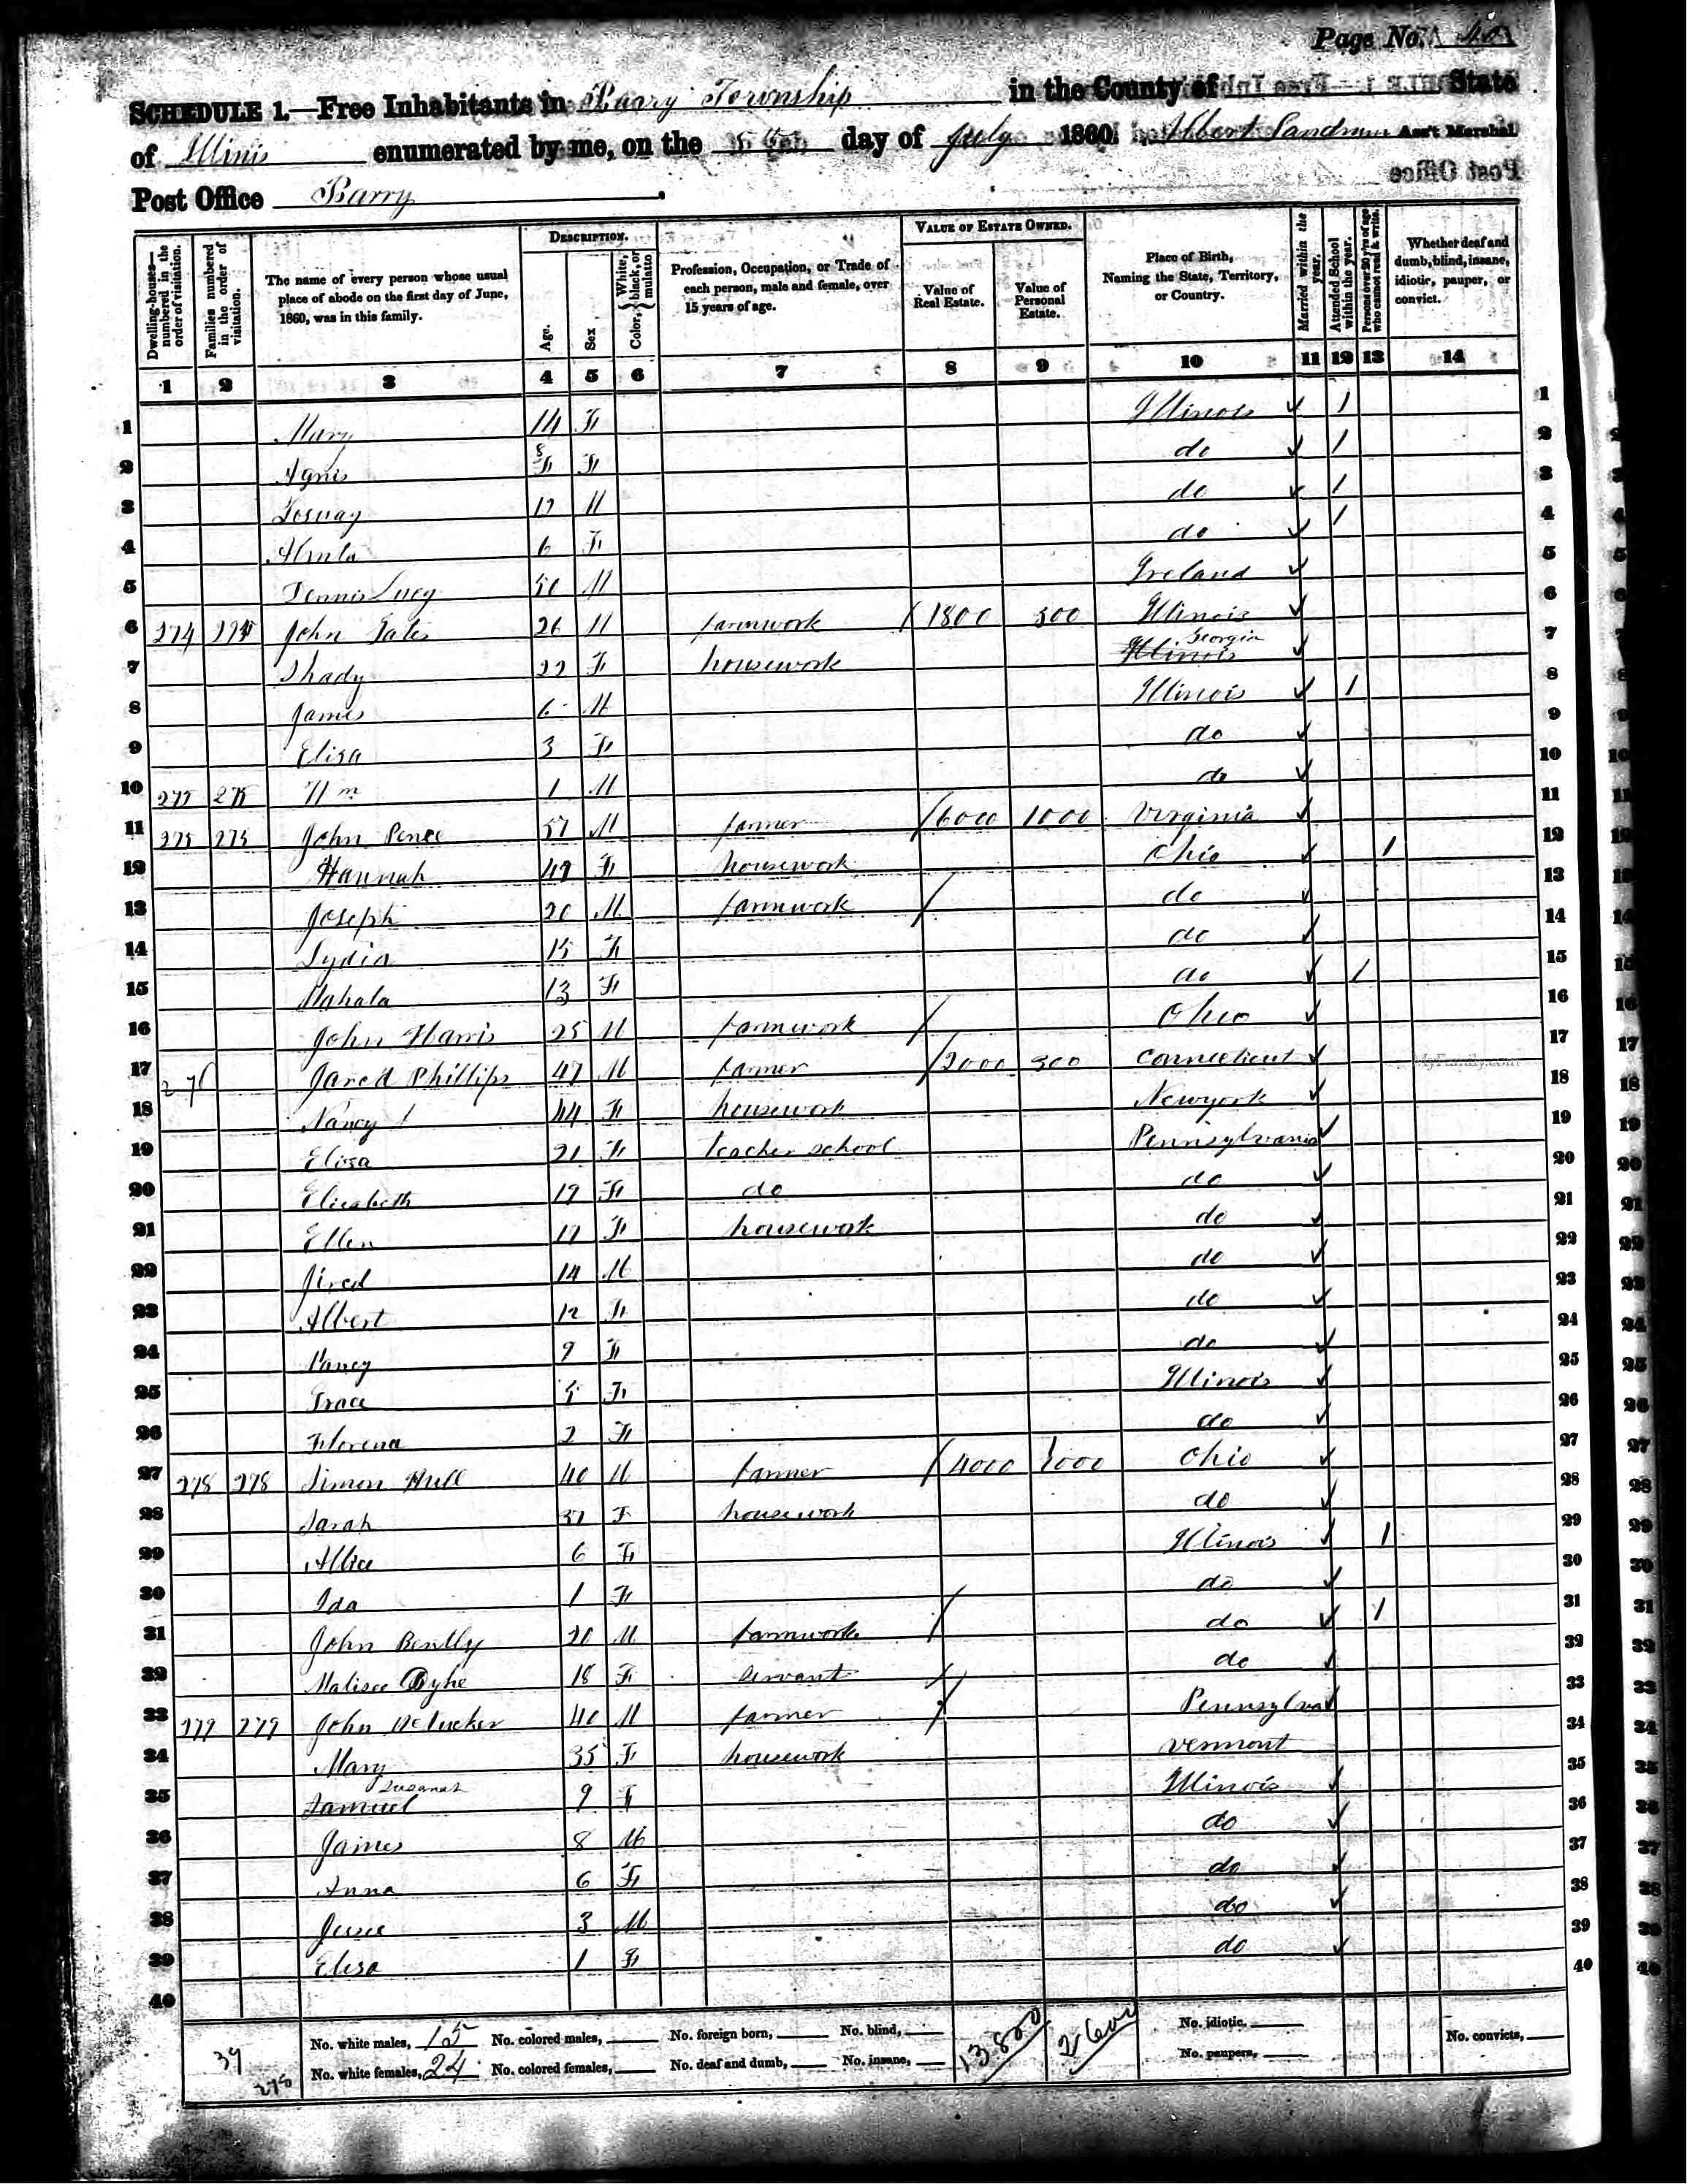 Page No. 40
SCHEDULE 1.—Free Inhabitants in Barry Township in the County of State
of Illinis enumerated by me, on the 5th day of July 1860. Albert Landrum Ass't Marshal
Post Office Barry.
Post Office
Dwelling-houses—numbered in the order of visitation. Families numbered in the order of visitation. The name of every person whose usual place of abode on the first day of June, 1860, was in this family. DESCRIPTION. Age. Sex Color, { White, black, or mulatto Profession, Occupation, or Trade of each person, male and female, over 15 years of age. VALUE OF ESTATE OWNED. Value of Real Estate. Value of Personal Estate. Place of Birth, Naming the State, Territory, or Country. Married within the year. Attended School within the year. Persons over 20 y'rs of age who cannot read & write. Whether deaf and dumb, blind, insane, idiotic, pauper, or convict.
1 2 3 4 5 6 7 8 9 10 11 12 13 14
1 Mary 14 F Illinois 1 1
2 Agnis 8 F do 1 2
3 M do 1 3
4 6 F do 1 4
5 Dennis Lucy 50 M Ireland 5
6 274 274 John 26 M farmwork 1800 300 Illinois 6
7 Shady 22 F housework Illinois Georgia 7
8 James 6 M Illinois 1 8
9 Eliza 3 F do 9
10 Wm 1 M do 10
11 275 275 John Pence 57 M farmer 6000 1000 Virginia 11
12 Hannah 49 F housework Ohio 1 12
13 Joseph 20 M farmwork do 13
14 Lydia 15 F do 14
15 Mahala 13 F do 1 15
16 John Harris 25 M farmwork Ohio 16
17 276 Jared Phillips 47 M farmer 2000 300 Connecticut 17
18 Nancy 44 F housework Newyork 18
19 Eliza 21 F teacher school Pennsylvania 19
20 Eliesbeth 19 F do do 20
21 Ellen 17 F housework do 21
22 Jired 14 M do 22
23 Albert 12 F do 23
24 Nancy 9 F do 24
25 Grace 5 F Illinois 25
26 Florena 2 F do 26
27 278 278 Simon Hull 40 M farmer 4000 1000 Ohio 27
28 Sarah 37 F housework do 28
29 Allice 6 F Illinois 1 29
30 Ida 1 F do 30
31 John Bently 20 M farmwork do 1 31
32 Malisce Dyke 18 F servant do 32
33 279 279 John 40 M farmer Pennsylva 33
34 Mary 35 F housework Vermont 34
35 Samuel Susanah 9 F Illinois 35
36 James 8 M do 36
37 Anna 6 F do 37
38 Jesse 3 M do 38
39 Elisa 1 F do 39
40 40
39
278
No. white males, 15 No. colored males, No. foreign born, No. blind, 13800 2600 No. idiotic. No. convicts,
No. white females, 24 No. colored females, No. deaf and dumb, No. insane, No. paupers,
MyFamily.com